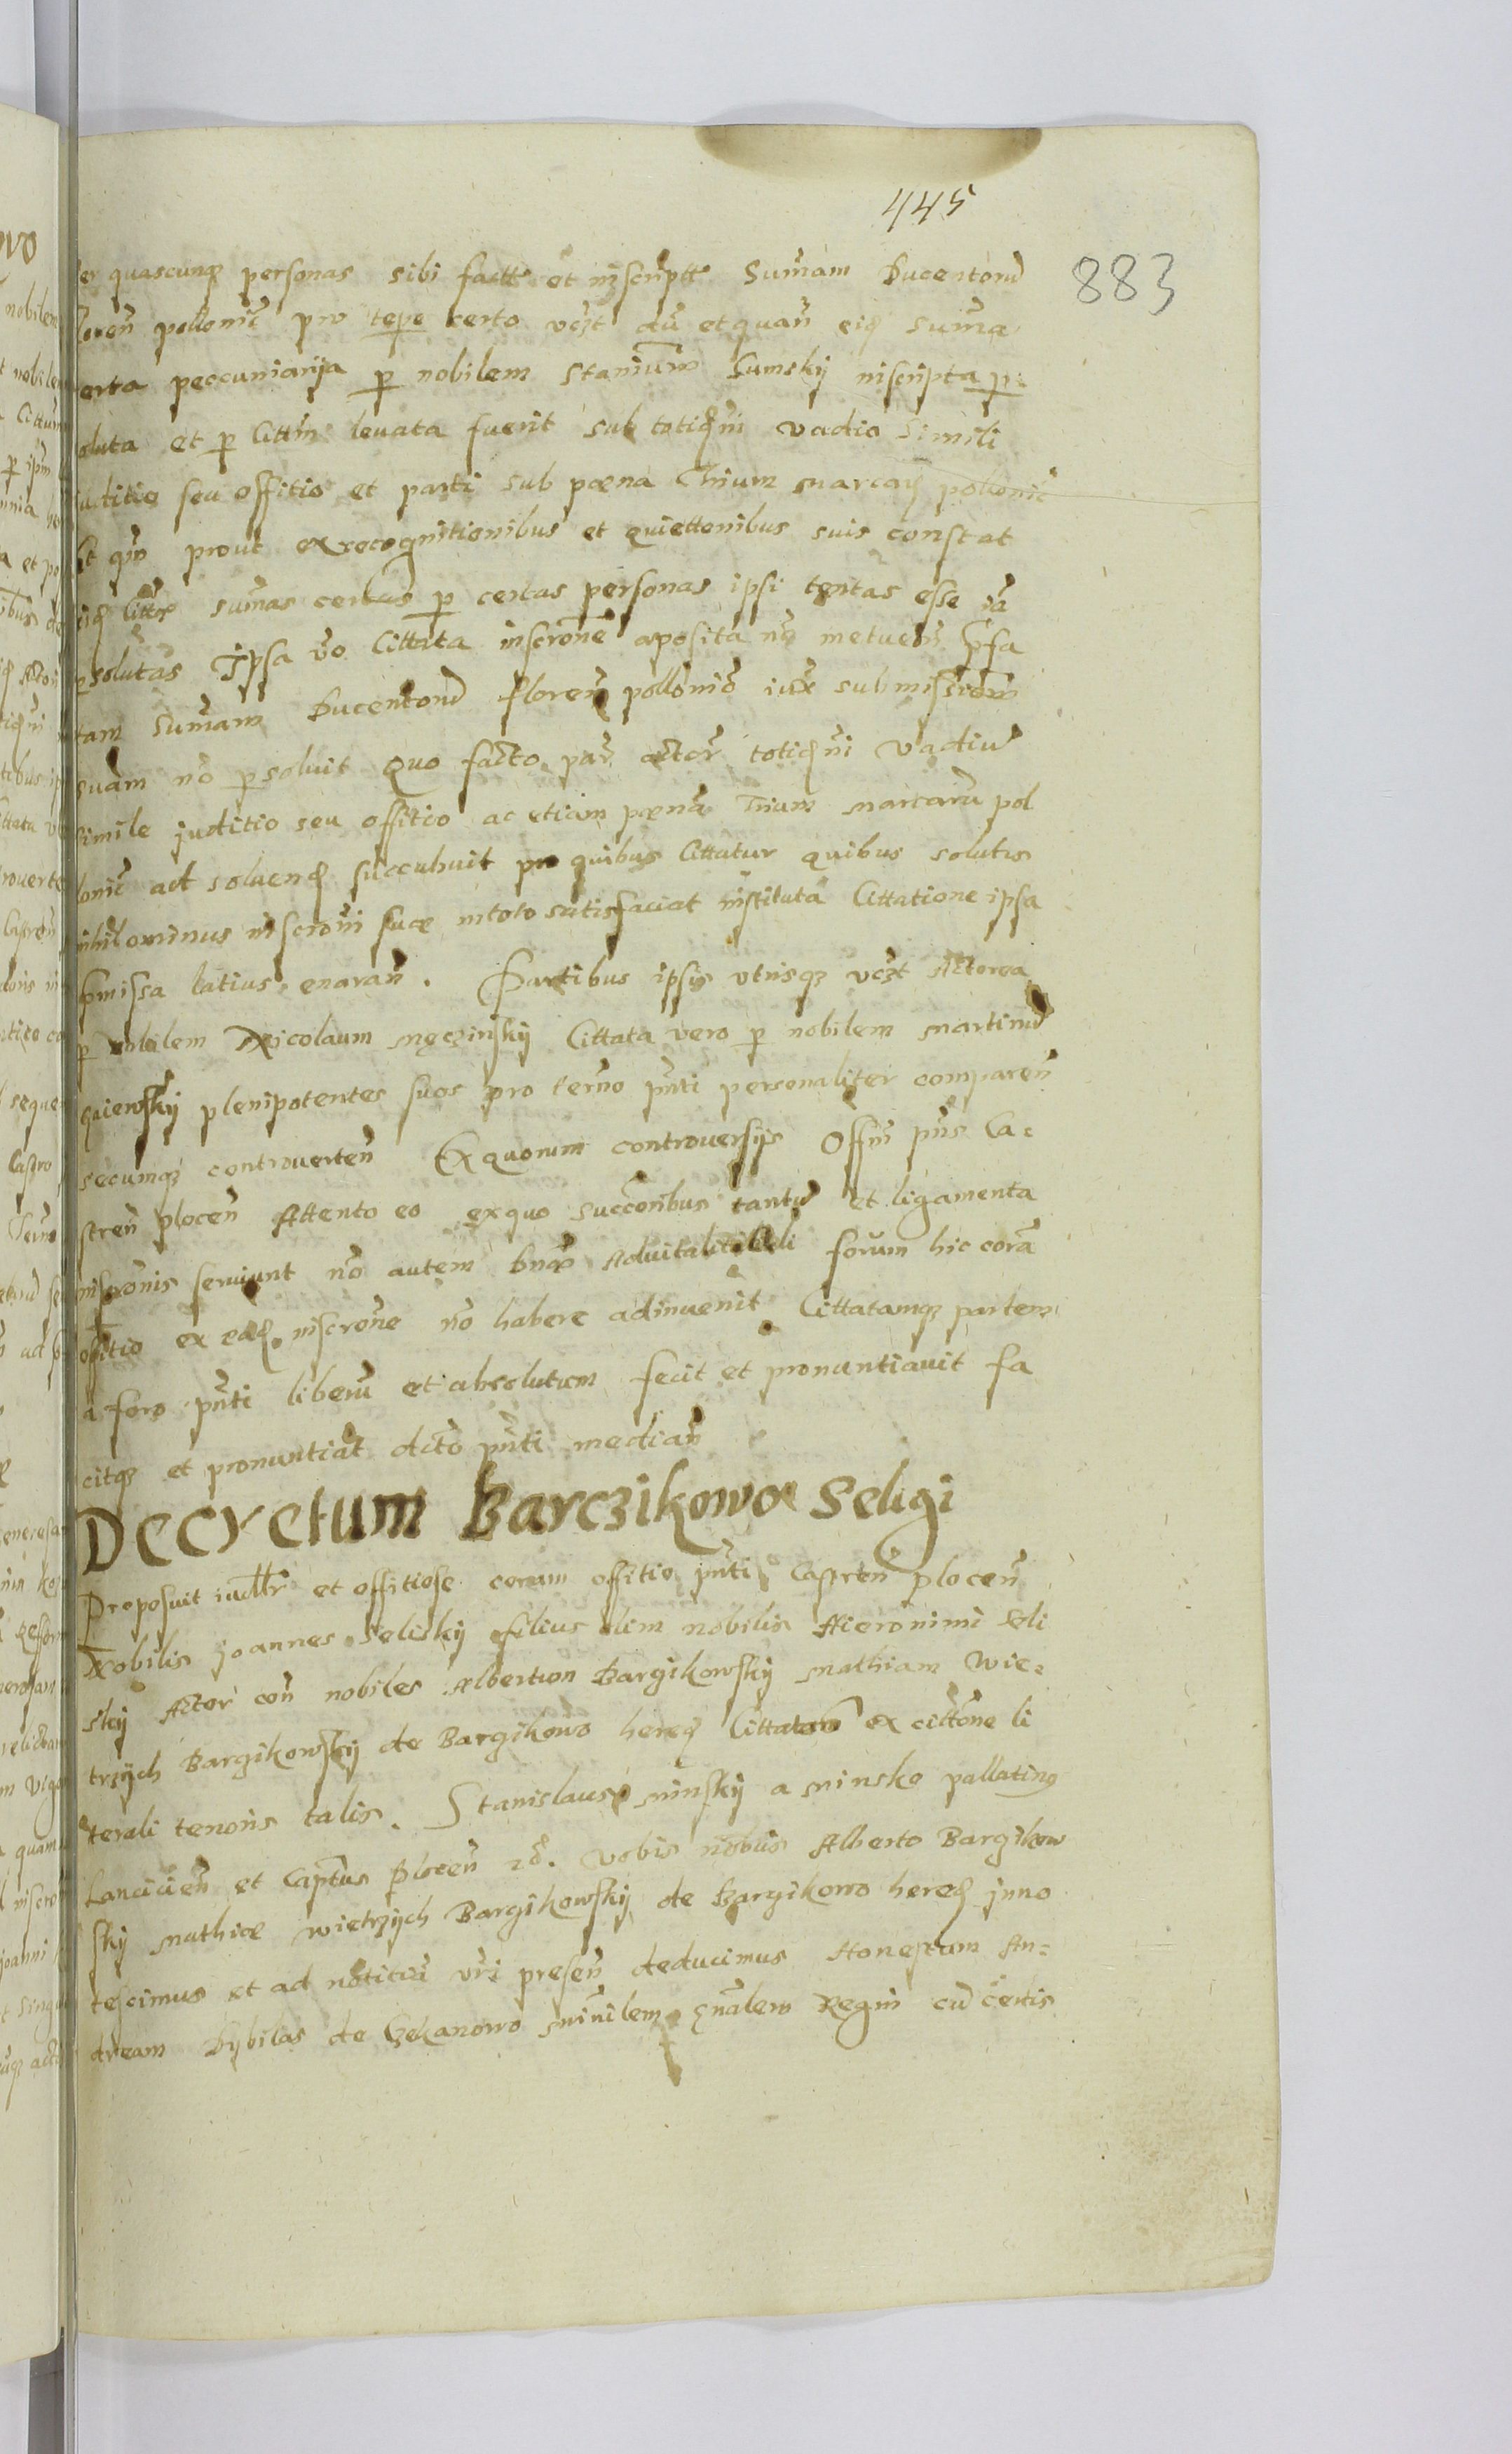 445
883
er quascunq personas sibi factt et inscriptt Sumam Ducentoru
loren pollonic pro tepe certo vczt du et quan eiq suma
erta peccuniarija p nobilem Stanium Sumskij inscripta p:
oluta et p Cittm leuata fuerit sub totiqni vadio simili
juditio seu offitio et parti sub poena Trium marcarq polonic
Et qm prout ex recognitionibus et quiettonibus suis constat
eiq Citte sumas certas p certas personas ipsi tentas esse ia
psolutas Ipsa vo Cittata inscrone aposita no metuen Pfa
tam Sumam Ducentoru floren pollonic iux submissiom
suam no psoluit Quo facto par actor totiqni Vadiu
simile juditio seu offitio ac etiam poena Trium marcaru pol
lonic ad soluenq succubuit pro quibus Cittatur quibus solutis
nihilominus inscroni suae in toto satisfaciat instituta Cittatione ipsa
pmissa latius enaran. Partibus ipsis vtrisq vczt Actorea
p nobilem Nicolaum Męczinskij Cittata vero p nobilem Martinu
gaiewskij plenipotentes suos pro termo pnti personaliter comparen
secumq controuerten Ex quorum controuersijs Offm pns Ca=
stren plocen Attento eo ex quo succonibus tantu et ligamenta
inscronis seruiunt no autem bnae Aduitalitibili forum hic cora
offitio ex eaq inscrone no habere adinuenit Cittatamq partem
a foro pnti liberu et absolutum fecit et pronuntiauit fa
citq et pronuntiat dcto pnti median
Decretum Barczikowo Seligi
Proposuit iudllr et offitiose coram offitio pnti Castren plocen
Nobilis joannes Seliskij filius olim nobilis Hieronimi Seli
skij Actor con nobiles Albertum Bargikowskij Mathiam Wie=
trzijch Bargikowskij de Bargikowo hereq Cittatos ex cittone li
terali tenoris talis. Stanislaus Minskij a Minsko pallatinq
Lancicien et Captus Plocen etc. vobis nobus Alberto Bargikow
skij Mathiae wietrzijch Bargikowskij de Bargikowo hereq jnno
tescimus et ad notitia vri presen deducimus Honestum An=
dream Dijbilas de Czekanowo mnilem gnalem Regni cu certis